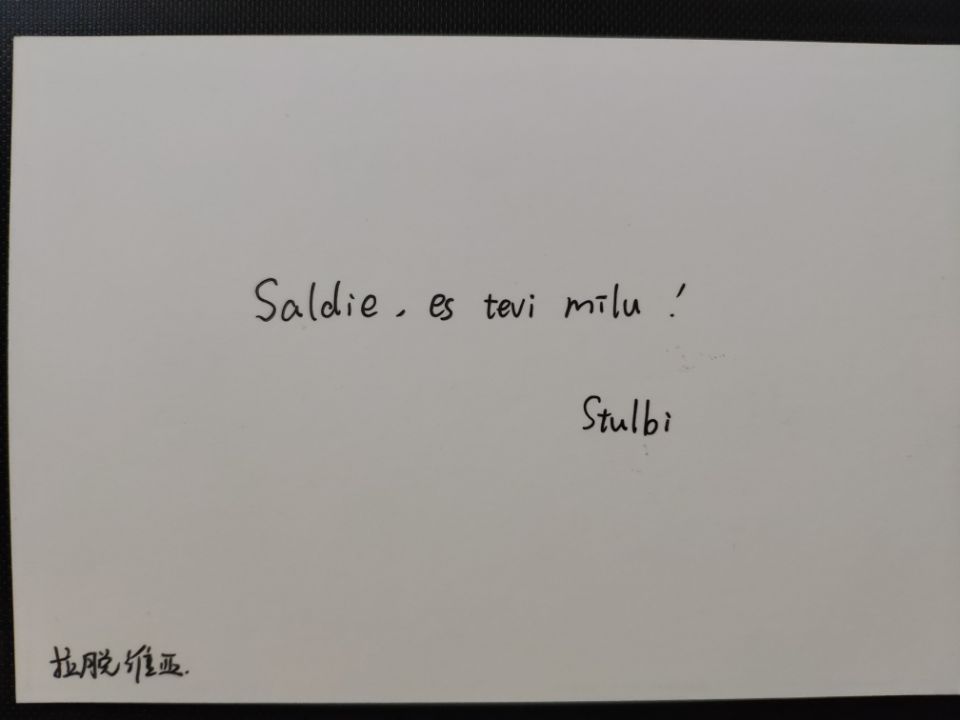 Saldie, es tevi mīlu!
Stulbi
拉脱维亚.